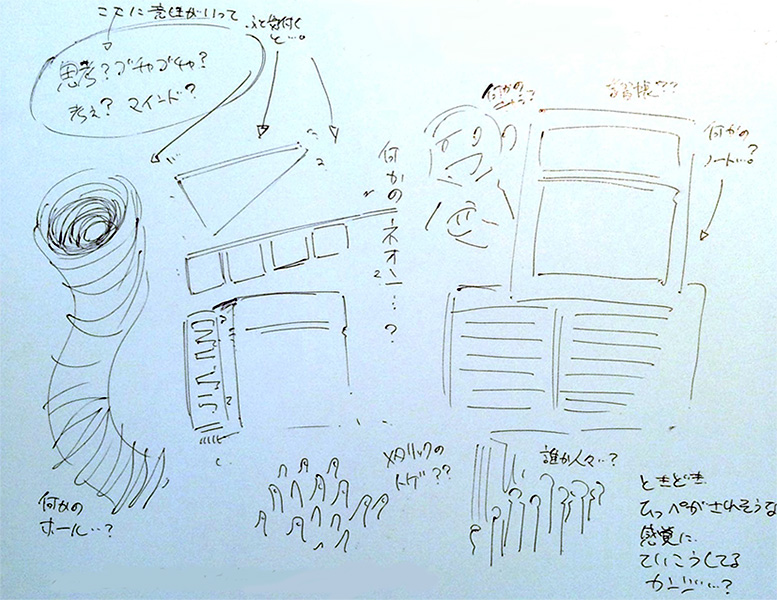 ここに意識がいって
ふと気付くと…。
思考？ゴチャゴチャ？
考え？マインド？
何かのネオン…？
何かの
何かの
ノート…？
メタリックの
トゲ？？
誰か人々…？
何かの
ホール…？
ときどき
ひっぺがされそうな
感覚に
ていこうしてる
カンジ…？